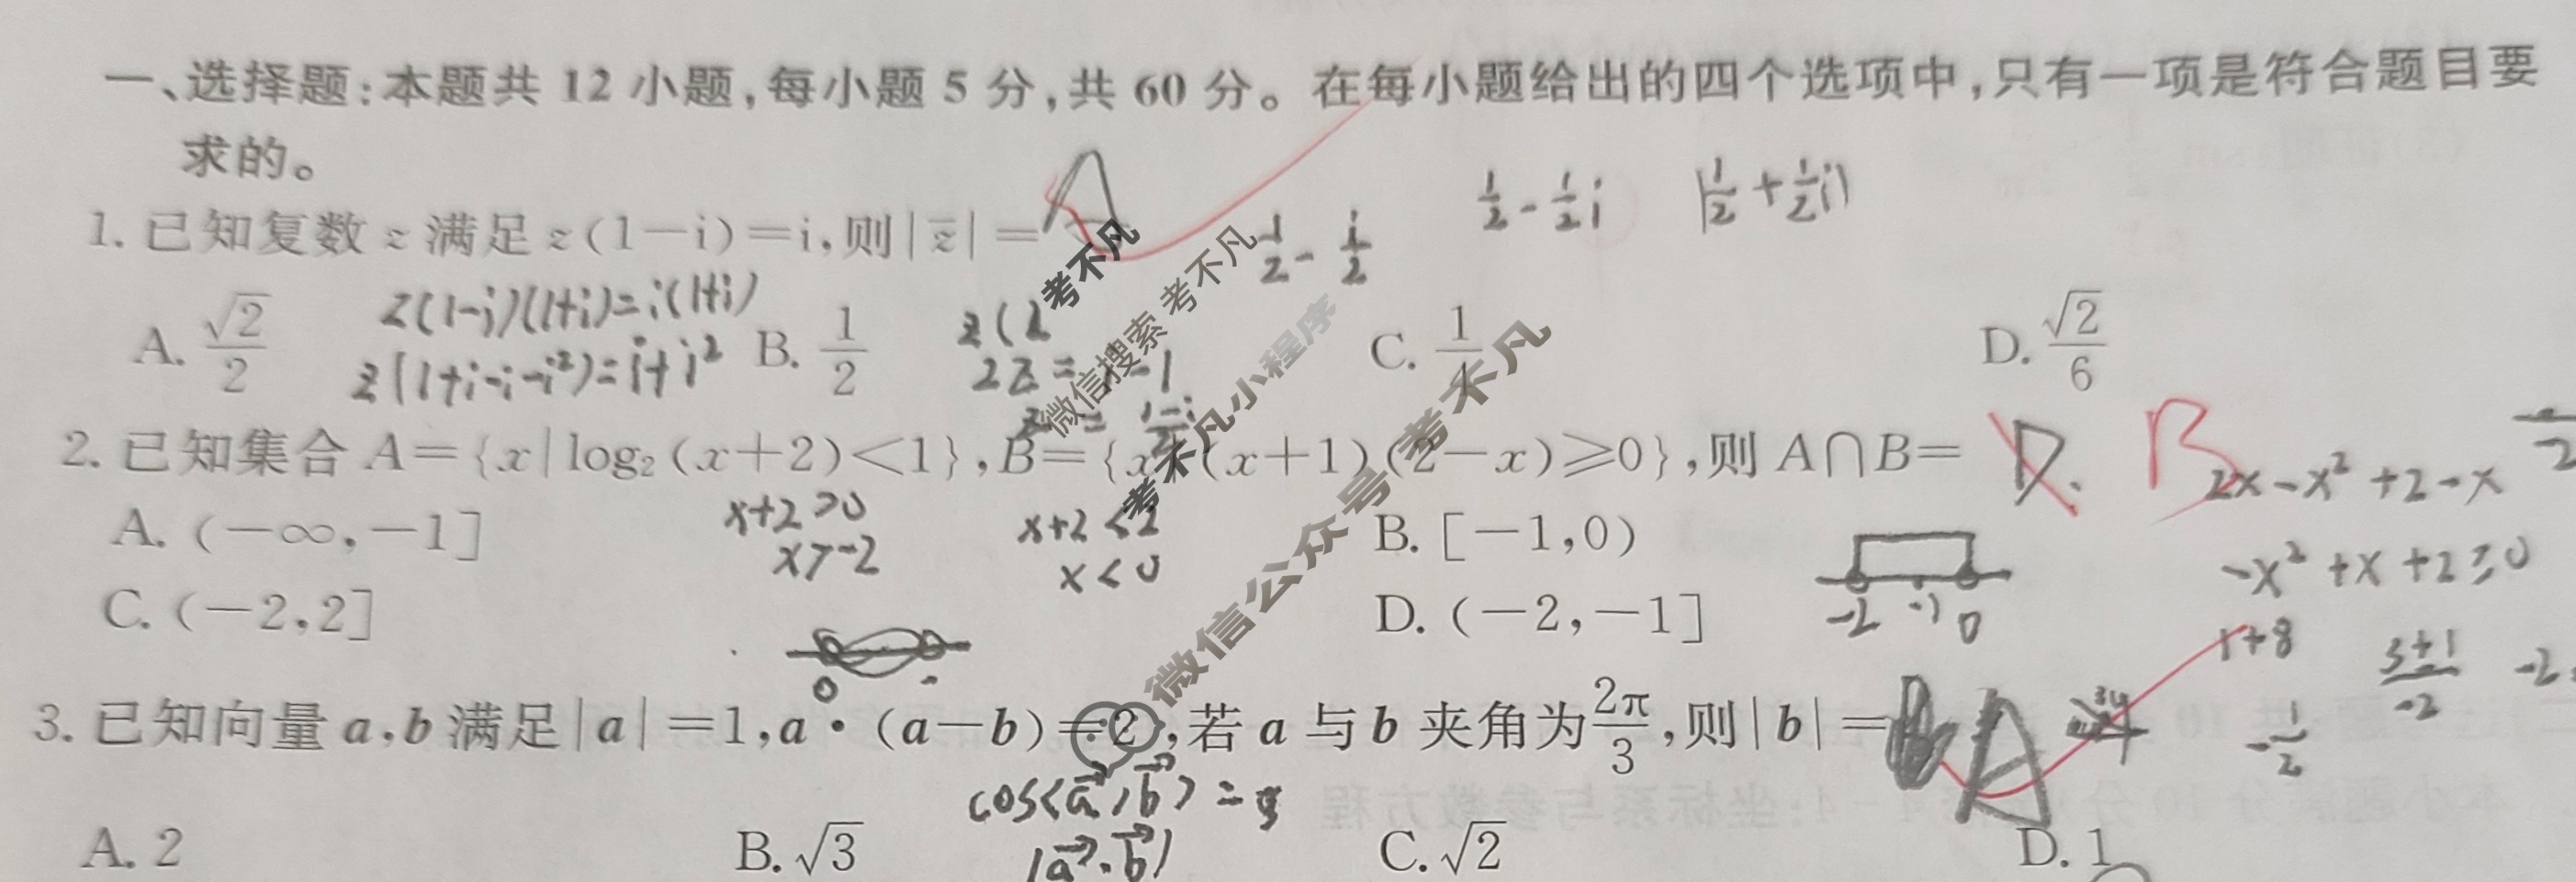 一、选择题:本题共 12 小题,每小题 5 分,共 60 分。在每小题给出的四个选项中,只有一项是符合题目要
求的。
1. 已知复数 z 满足 z(1-i)=i,则|z̄|= A
1/2 - i/2
1/2 - 1/2 i
|1/2 + 1/2 i|
A. √2/2
B. 1/2
C. 1/4
D. √2/6
z(1-i)(1+i)=i(1+i)
z(1+i-i-i²)=i+i²
2. 已知集合 A={x|log₂(x+2)<1},B={x|(x+1)(2-x)≥0},则 A∩B= D. B
2x-x²+2-x
A. (-∞,-1]
B. [-1,0)
x+2>0
x>-2
x+2<2
x<0
-x²+x+2≥0
C. (-2,2]
D. (-2,-1]
-2 -1 0
1+8
3+1/-2
-1/2
0
3. 已知向量 a,b 满足|a|=1,a·(a-b)=2,若 a 与 b 夹角为2π/3,则|b|= A
cos<a⃗,b⃗>=
|a⃗·b⃗|
A. 2
B. √3
C. √2
D. 1
考不凡
微信搜索 考不凡
考不凡小程序
微信公众号 考不凡